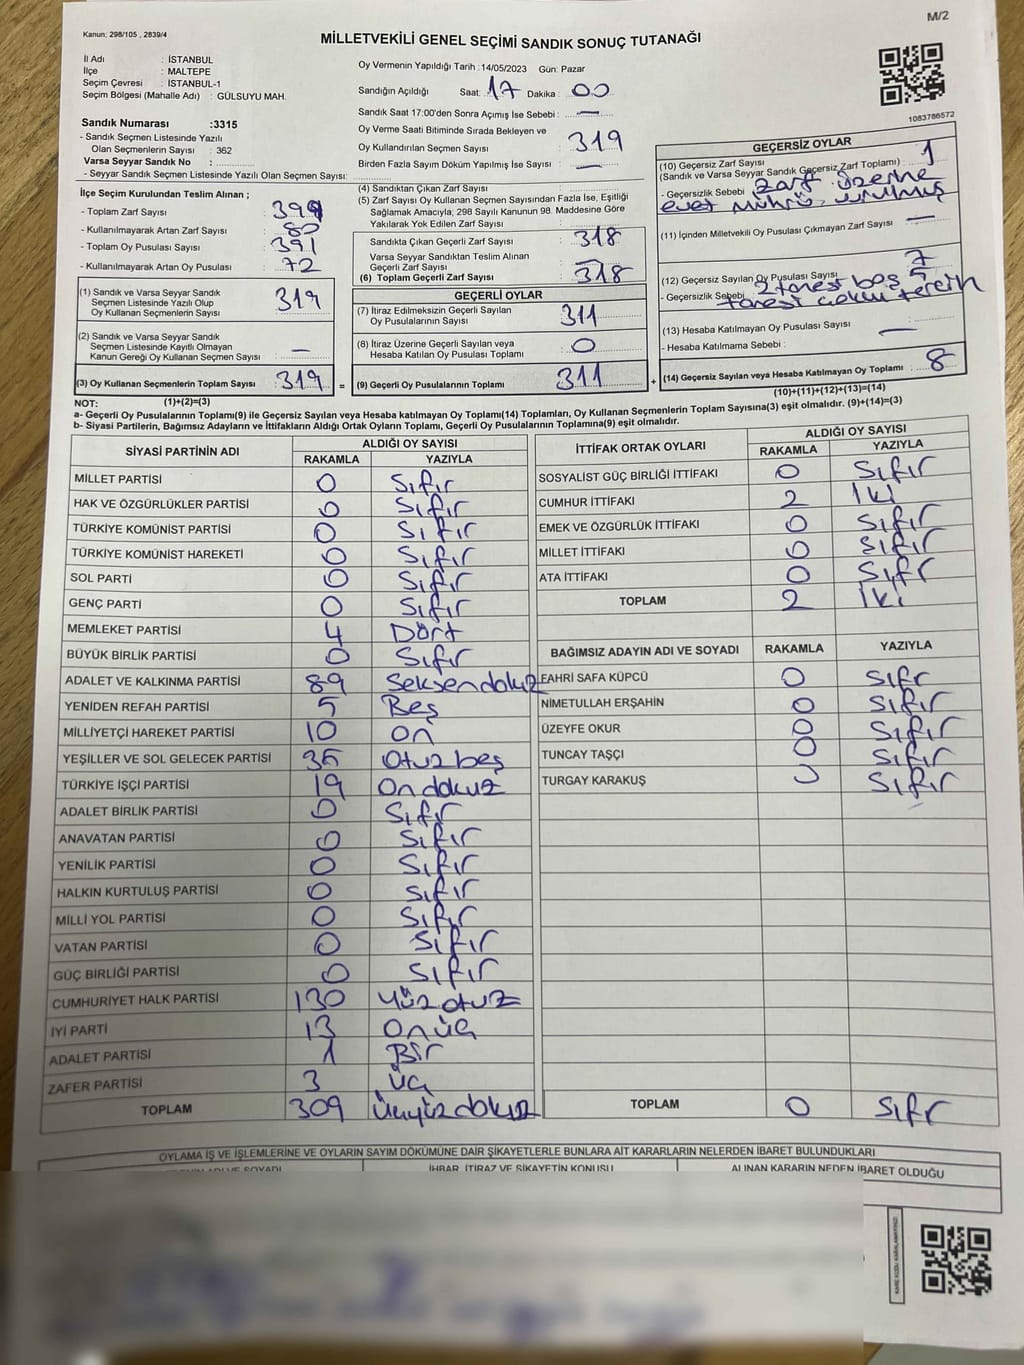 M/2
Kanun: 298/105 , 2839/4
MİLLETVEKİLİ GENEL SEÇİMİ SANDIK SONUÇ TUTANAĞI
İl Adı : İSTANBUL
İlçe : MALTEPE
Seçim Çevresi : İSTANBUL-1
Seçim Bölgesi (Mahalle Adı) : GÜLSUYU MAH.
Sandık Numarası :3315
- Sandık Seçmen Listesinde Yazılı
Olan Seçmenlerin Sayısı : 362
Varsa Seyyar Sandık No :
- Seyyar Sandık Seçmen Listesinde Yazılı Olan Seçmen Sayısı:
Oy Vermenin Yapıldığı Tarih : 14/05/2023 Gün: Pazar
Sandığın Açıldığı Saat: 17 Dakika : 00
Sandık Saat 17:00'den Sonra Açımış İse Sebebi : —
Oy Verme Saati Bitiminde Sırada Bekleyen ve
Oy Kullandırılan Seçmen Sayısı : 319
Birden Fazla Sayım Döküm Yapılmış İse Sayısı : —
1083786572
İlçe Seçim Kurulundan Teslim Alınan ;
- Toplam Zarf Sayısı : 399
- Kullanılmayarak Artan Zarf Sayısı : 80
- Toplam Oy Pusulası Sayısı : 391
- Kullanılmayarak Artan Oy Pusulası : 72
(1) Sandık ve Varsa Seyyar Sandık
Seçmen Listesinde Yazılı Olup
Oy Kullanan Seçmenlerin Sayısı : 319
(2) Sandık ve Varsa Seyyar Sandık
Seçmen Listesinde Kayıtlı Olmayan
Kanun Gereği Oy Kullanan Seçmen Sayısı : —
(3) Oy Kullanan Seçmenlerin Toplam Sayısı : 319 =
(1)+(2)=(3)
(4) Sandıktan Çıkan Zarf Sayısı :
(5) Zarf Sayısı Oy Kullanan Seçmen Sayısından Fazla İse, Eşitliği
Sağlamak Amacıyla, 298 Sayılı Kanunun 98. Maddesine Göre
Yakılarak Yok Edilen Zarf Sayısı :
Sandıkta Çıkan Geçerli Zarf Sayısı : 318
Varsa Seyyar Sandıktan Teslim Alınan
Geçerli Zarf Sayısı : —
(6) Toplam Geçerli Zarf Sayısı : 318
GEÇERLİ OYLAR
(7) İtiraz Edilmeksizin Geçerli Sayılan
Oy Pusulalarının Sayısı : 311
(8) İtiraz Üzerine Geçerli Sayılan veya
Hesaba Katılan Oy Pusulası Toplamı : 0
(9) Geçerli Oy Pusulalarının Toplamı : 311 +
GEÇERSİZ OYLAR
(10) Geçersiz Zarf Sayısı
(Sandık ve Varsa Seyyar Sandık Geçersiz Zarf Toplamı) : 1
- Geçersizlik Sebebi : Zarf üzerine
evet mührü vurulmuş
(11) İçinden Milletvekili Oy Pusulası Çıkmayan Zarf Sayısı : —
(12) Geçersiz Sayılan Oy Pusulası Sayısı : 7
- Geçersizlik Sebebi : 2 tanesi boş 5
tanesi çoklu tercih
(13) Hesaba Katılmayan Oy Pusulası Sayısı : —
- Hesaba Katılmama Sebebi :
(14) Geçersiz Sayılan veya Hesaba Katılmayan Oy Toplamı : 8
(10)+(11)+(12)+(13)=(14)
NOT:
a- Geçerli Oy Pusulalarının Toplamı(9) ile Geçersiz Sayılan veya Hesaba katılmayan Oy Toplamı(14) Toplamları, Oy Kullanan Seçmenlerin Toplam Sayısına(3) eşit olmalıdır. (9)+(14)=(3)
b- Siyasi Partilerin, Bağımsız Adayların ve İttifakların Aldığı Ortak Oyların Toplamı, Geçerli Oy Pusulalarının Toplamına(9) eşit olmalıdır.
SİYASİ PARTİNİN ADI ALDIĞI OY SAYISI
RAKAMLA YAZIYLA
MİLLET PARTİSİ 0 Sıfır
HAK VE ÖZGÜRLÜKLER PARTİSİ 0 Sıfır
TÜRKİYE KOMÜNİST PARTİSİ 0 Sıfır
TÜRKİYE KOMÜNİST HAREKETİ 0 Sıfır
SOL PARTİ 0 Sıfır
GENÇ PARTİ 0 Sıfır
MEMLEKET PARTİSİ 4 Dört
BÜYÜK BİRLİK PARTİSİ 0 Sıfır
ADALET VE KALKINMA PARTİSİ 89 Seksendokuz
YENİDEN REFAH PARTİSİ 5 Beş
MİLLİYETÇİ HAREKET PARTİSİ 10 On
YEŞİLLER VE SOL GELECEK PARTİSİ 35 Otuz beş
TÜRKİYE İŞÇİ PARTİSİ 19 On dokuz
ADALET BİRLİK PARTİSİ 0 Sıfır
ANAVATAN PARTİSİ 0 Sıfır
YENİLİK PARTİSİ 0 Sıfır
HALKIN KURTULUŞ PARTİSİ 0 Sıfır
MİLLİ YOL PARTİSİ 0 Sıfır
VATAN PARTİSİ 0 Sıfır
GÜÇ BİRLİĞİ PARTİSİ 0 Sıfır
CUMHURİYET HALK PARTİSİ 130 Yüz otuz
İYİ PARTİ 13 On üç
ADALET PARTİSİ 1 Bir
ZAFER PARTİSİ 3 Üç
TOPLAM 309 Üçyüz dokuz
İTTİFAK ORTAK OYLARI ALDIĞI OY SAYISI
RAKAMLA YAZIYLA
SOSYALİST GÜÇ BİRLİĞİ İTTİFAKI 0 Sıfır
CUMHUR İTTİFAKI 2 İki
EMEK VE ÖZGÜRLÜK İTTİFAKI 0 Sıfır
MİLLET İTTİFAKI 0 Sıfır
ATA İTTİFAKI 0 Sıfır
TOPLAM 2 İki
BAĞIMSIZ ADAYIN ADI VE SOYADI RAKAMLA YAZIYLA
FAHRİ SAFA KÜPCÜ 0 Sıfır
NİMETULLAH ERŞAHİN 0 Sıfır
ÜZEYFE OKUR 0 Sıfır
TUNCAY TAŞÇI 0 Sıfır
TURGAY KARAKUŞ 0 Sıfır
TOPLAM 0 Sıfır
OYLAMA İŞ VE İŞLEMLERİNE VE OYLARIN SAYIM DÖKÜMÜNE DAİR ŞİKAYETLERLE BUNLARA AİT KARARLARIN NELERDEN İBARET BULUNDUKLARI
İHBAR, İTİRAZ VE ŞİKAYETİN KONUSU ALINAN KARARIN NEDEN İBARET OLDUĞU